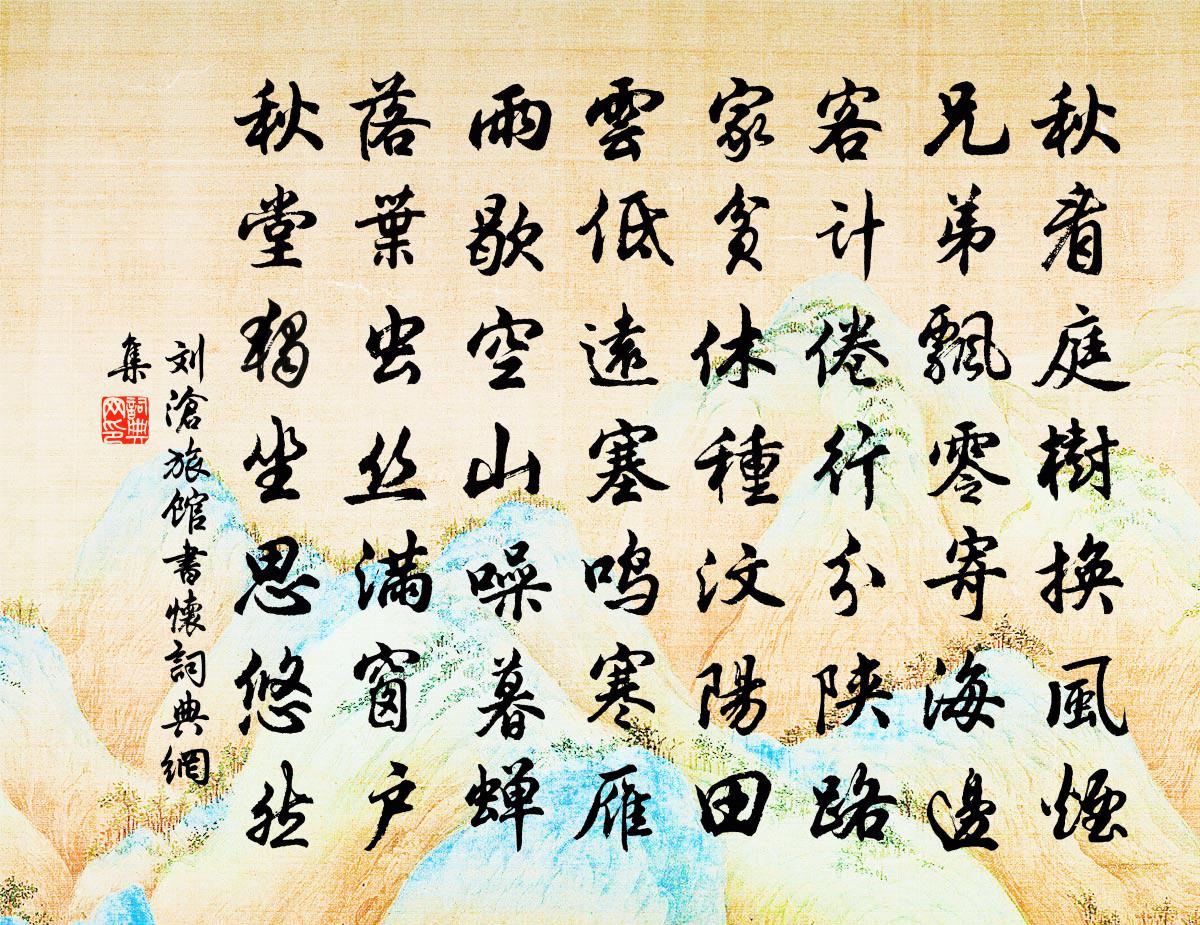 秋看庭樹換風煙
兄弟飄零寄海邊
客計倦行分陝路
家貧休種汶陽田
雲低遠塞鳴寒雁
雨歇空山噪暮蟬
落葉虫丝滿窗户
秋堂獨坐思悠然
刘滄旅館書懷詞典網
集
詞典
网印